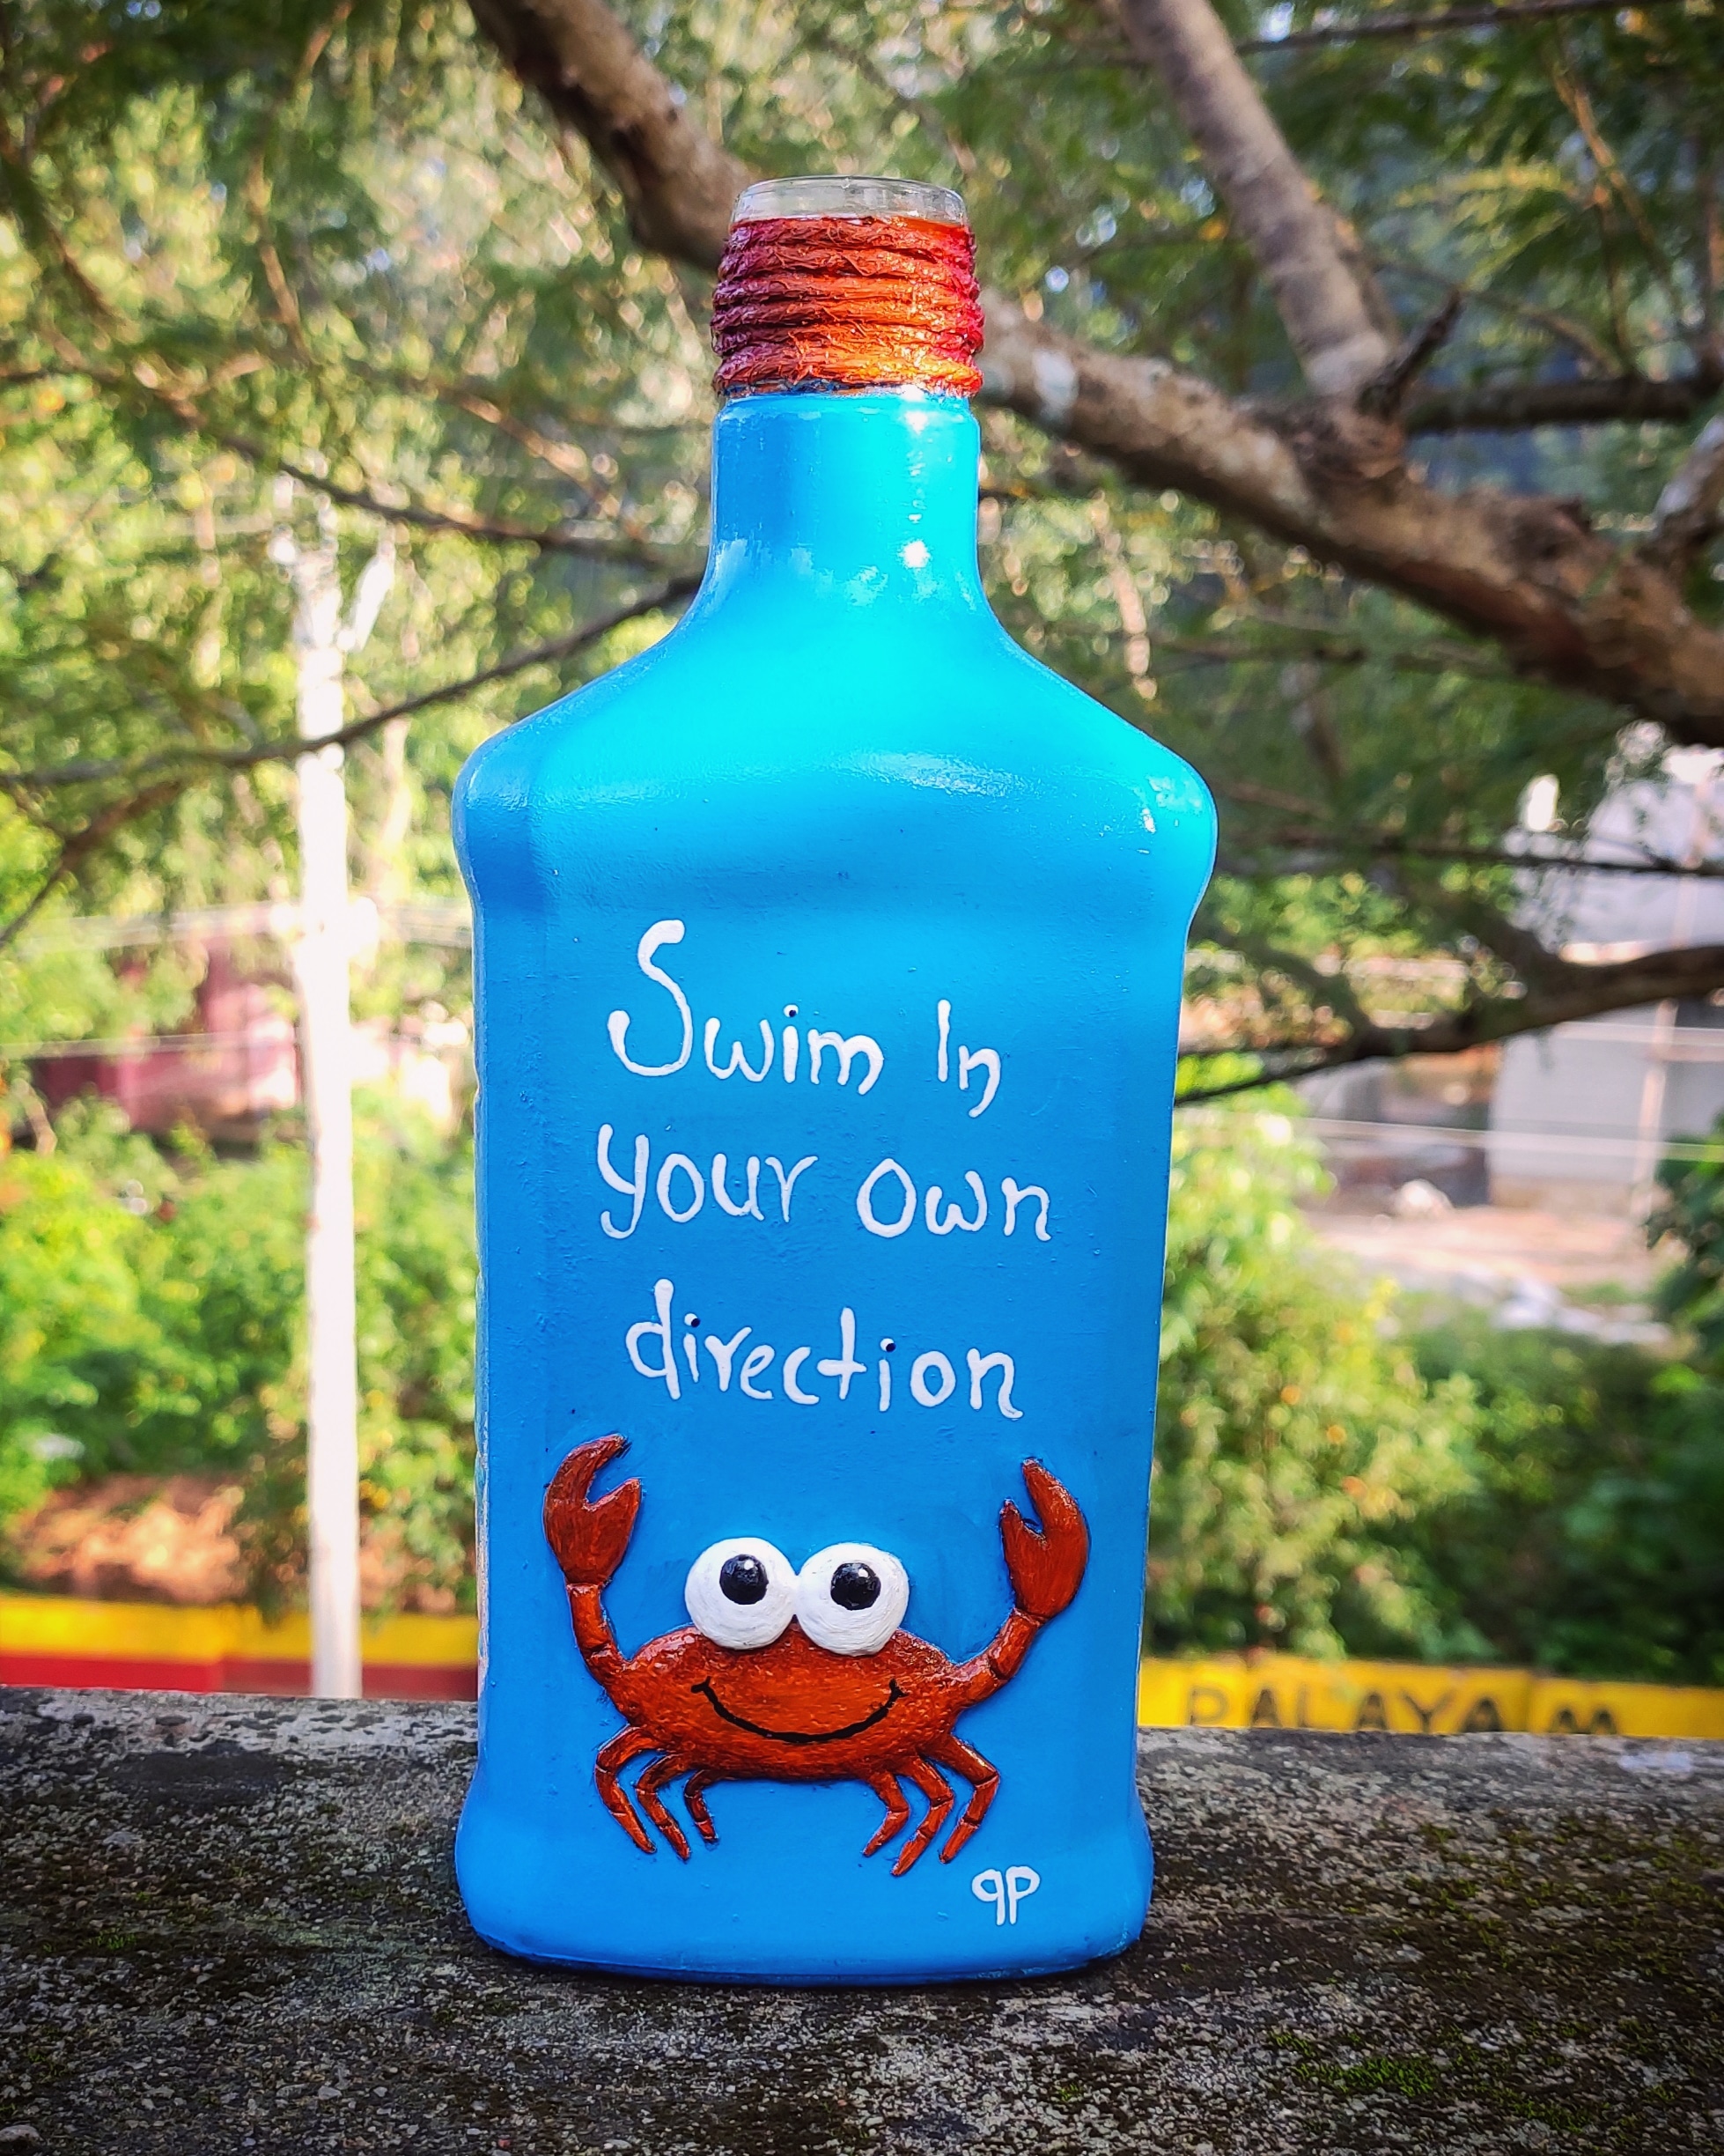 Swim In
your own
direction
qp
PALAYAM